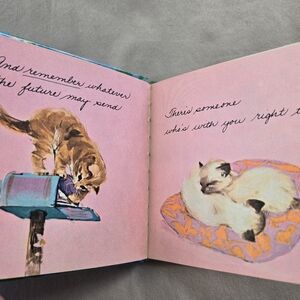 And remember whatever
the future may send
There's someone
who's with you right t